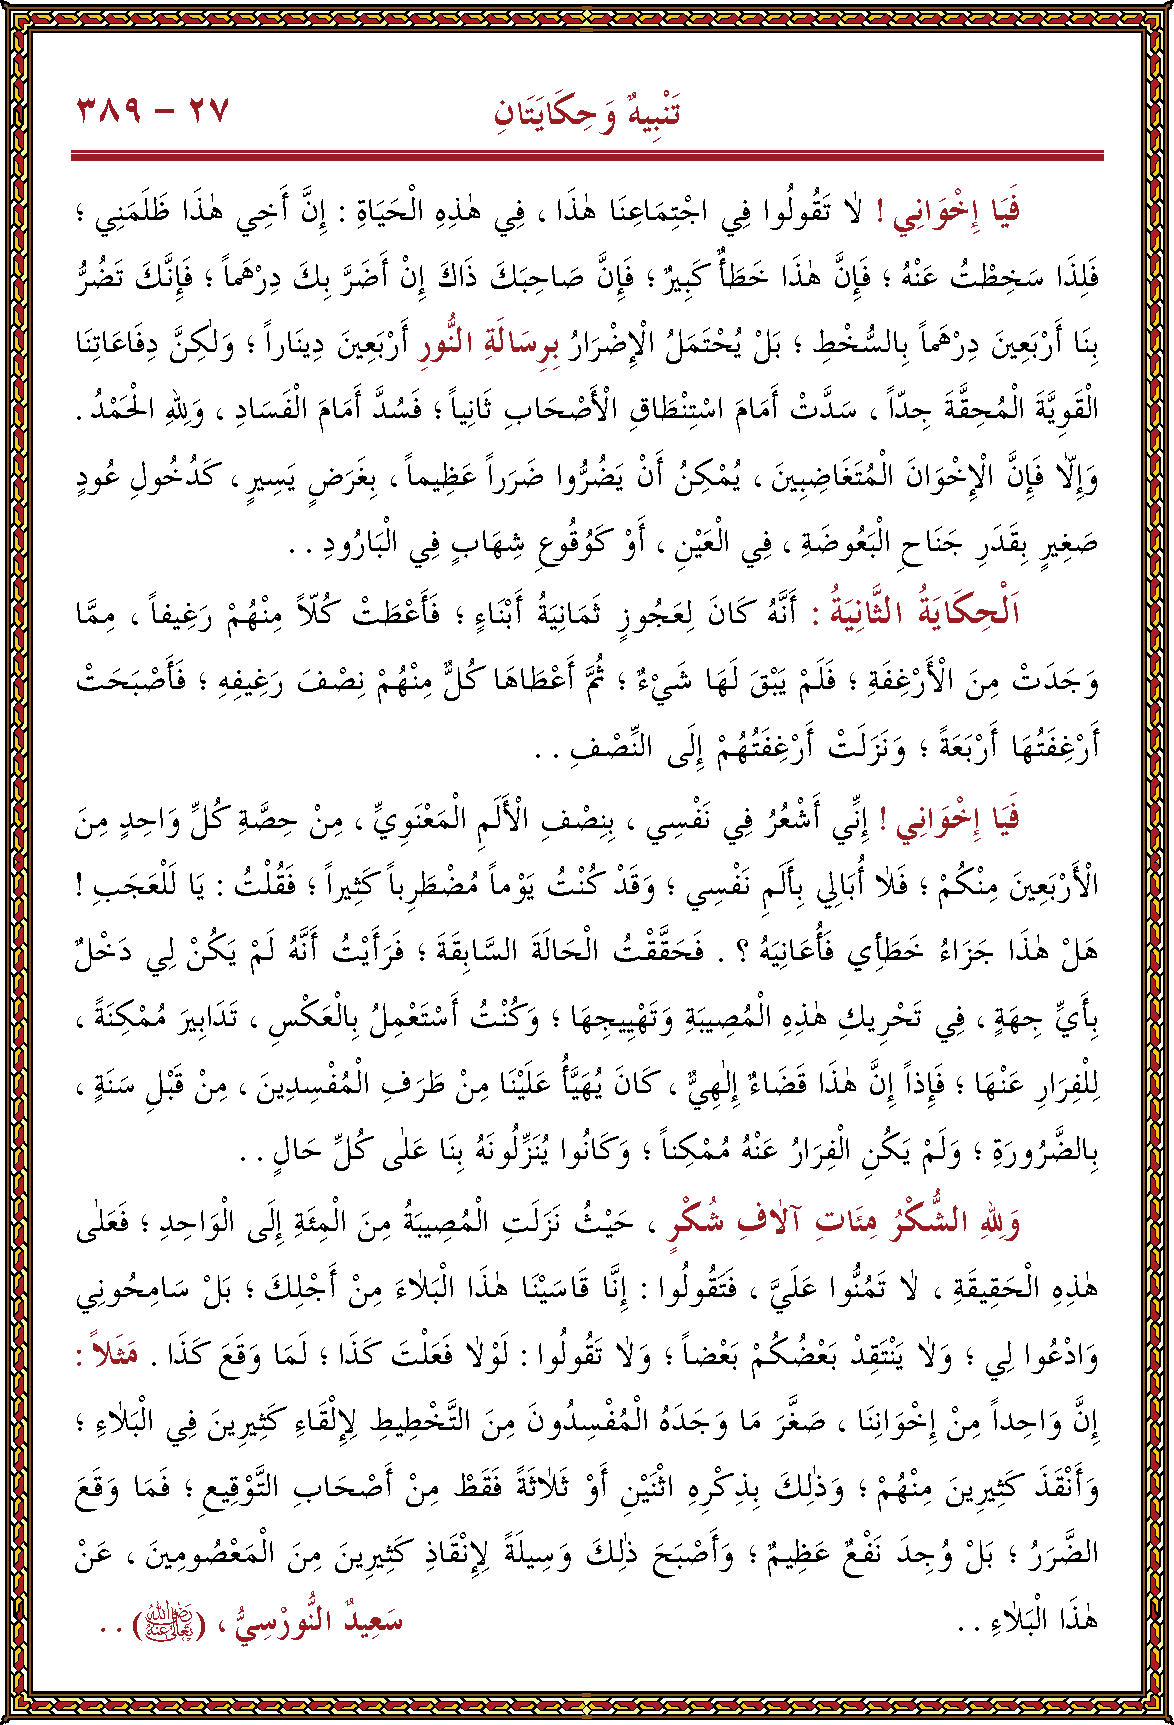 تَنْبِيهٌ وَحِكَايَتَانِ ٢٧ – ٣٨٩
فَيَا إِخْوَانِي ! لَا تَقُولُوا فِي اجْتِمَاعِنَا هٰذَا ، فِي هٰذِهِ الْحَيَاةِ : إِنَّ أَخِي هٰذَا ظَلَمَنِي ؛
فَلِذَا سَخِطْتُ عَنْهُ ؛ فَإِنَّ هٰذَا خَطَأٌ كَبِيرٌ ؛ فَإِنَّ صَاحِبَكَ ذَاكَ إِنْ أَضَرَّ بِكَ دِرْهَماً ؛ فَإِنَّكَ تَضُرُّ
بِنَا أَرْبَعِينَ دِرْهَماً بِالسُّخْطِ ؛ بَلْ يُحْتَمَلُ الْإِضْرَارُ بِرِسَالَةِ النُّورِ أَرْبَعِينَ دِينَاراً ؛ وَلٰكِنَّ دِفَاعَاتِنَا
الْقَوِيَّةَ الْمُحِقَّةَ جِدّاً ، سَدَّتْ أَمَامَ اسْتِنْطَاقِ الْأَصْحَابِ ثَانِياً ؛ فَسُدَّ أَمَامَ الْفَسَادِ ، وَلِلّٰهِ الْحَمْدُ .
وَإِلّاَ فَإِنَّ الْإِخْوَانَ الْمُتَغَاضِبِينَ ، يُمْكِنُ أَنْ يَضُرُّوا ضَرَراً عَظِيماً ، بِغَرَضٍ يَسِيرٍ ، كَدُخُولِ عُودٍ
صَغِيرٍ بِقَدَرِ جَنَاحِ الْبَعُوضَةِ ، فِي الْعَيْنِ ، أَوْ كَوُقُوعِ شِهَابٍ فِي الْبَارُودِ . .
اَلْحِكَايَةُ الثَّانِيَةُ : أَنَّهُ كَانَ لِعَجُوزٍ ثَمَانِيَةُ أَبْنَاءٍ ؛ فَأَعْطَتْ كُلّاً مِنْهُمْ رَغِيفاً ، مِمَّا
وَجَدَتْ مِنَ الْأَرْغِفَةِ ؛ فَلَمْ يَبْقَ لَهَا شَيْءٌ ؛ ثُمَّ أَعْطَاهَا كُلٌّ مِنْهُمْ نِصْفَ رَغِيفِهِ ؛ فَأَصْبَحَتْ
أَرْغِفَتُهَا أَرْبَعَةً ؛ وَنَزَلَتْ أَرْغِفَتُهُمْ إِلَى النِّصْفِ . .
فَيَا إِخْوَانِي ! إِنِّي أَشْعُرُ فِي نَفْسِي ، بِنِصْفِ الْأَلَمِ الْمَعْنَوِيِّ ، مِنْ حِصَّةِ كُلِّ وَاحِدٍ مِنَ
الْأَرْبَعِينَ مِنْكُمْ ؛ فَلَا أُبَالِي بِأَلَمِ نَفْسِي ؛ وَقَدْ كُنْتُ يَوْماً مُضْطَرِباً كَثِيراً ؛ فَقُلْتُ : يَا لَلْعَجَبِ !
هَلْ هٰذَا جَزَاءُ خَطَأِي فَأُعَانِيَهُ ؟ . فَحَقَّقْتُ الْحَالَةَ السَّابِقَةَ ؛ فَرَأَيْتُ أَنَّهُ لَمْ يَكُنْ لِي دَخْلٌ
بِأَيِّ جِهَةٍ ، فِي تَحْرِيكِ هٰذِهِ الْمُصِيبَةِ وَتَهْيِيجِهَا ؛ وَكُنْتُ أَسْتَعْمِلُ بِالْعَكْسِ ، تَدَابِيرَ مُمْكِنَةً ،
لِلْفِرَارِ عَنْهَا ؛ فَإِذاً إِنَّ هٰذَا قَضَاءٌ إِلٰهِيٌّ ، كَانَ يُهَيَّأُ عَلَيْنَا مِنْ طَرَفِ الْمُفْسِدِينَ ، مِنْ قَبْلِ سَنَةٍ ،
بِالضَّرُورَةِ ؛ وَلَمْ يَكُنِ الْفِرَارُ عَنْهُ مُمْكِناً ؛ وَكَانُوا يُنَزِّلُونَهُ بِنَا عَلٰى كُلِّ حَالٍ . .
وَلِلّٰهِ الشُّكْرُ مِئَاتِ آلَافِ شُكْرٍ ، حَيْثُ نَزَلَتِ الْمُصِيبَةُ مِنَ الْمِئَةِ إِلَى الْوَاحِدِ ؛ فَعَلٰى
هٰذِهِ الْحَقِيقَةِ ، لَا تَمُنُّوا عَلَيَّ ، فَتَقُولُوا : إِنَّا قَاسَيْنَا هٰذَا الْبَلَاءَ مِنْ أَجْلِكَ ؛ بَلْ سَامِحُونِي
وَادْعُوا لِي ؛ وَلَا يَنْتَقِدْ بَعْضُكُمْ بَعْضاً ؛ وَلَا تَقُولُوا : لَوْلَا فَعَلْتَ كَذَا ؛ لَمَا وَقَعَ كَذَا . مَثَلاً :
إِنَّ وَاحِداً مِنْ إِخْوَانِنَا ، صَغَّرَ مَا وَجَدَهُ الْمُفْسِدُونَ مِنَ التَّخْطِيطِ لِإِلْقَاءِ كَثِيرِينَ فِي الْبَلَاءِ ؛
وَأَنْقَذَ كَثِيرِينَ مِنْهُمْ ؛ وَذٰلِكَ بِذِكْرِهِ اثْنَيْنِ أَوْ ثَلَاثَةً فَقَطْ مِنْ أَصْحَابِ التَّوْقِيعِ ؛ فَمَا وَقَعَ
الضَّرَرُ ؛ بَلْ وُجِدَ نَفْعٌ عَظِيمٌ ؛ وَأَصْبَحَ ذٰلِكَ وَسِيلَةً لِإِنْقَاذِ كَثِيرِينَ مِنَ الْمَعْصُومِينَ ، عَنْ
هٰذَا الْبَلَاءِ . . سَعِيدٌ النُّورْسِيُّ ، (رَضِيَ اللّٰهُ تَعَالٰى عَنْهُ) . .